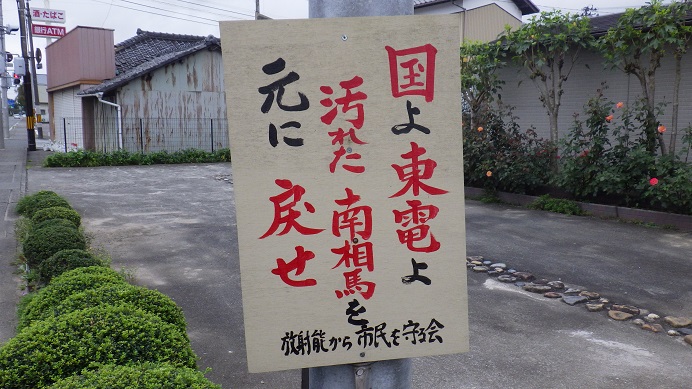 国よ東電よ
汚れた南相馬を
元に戻せ
放射能から市民を守る会
酒・たばこ
銀行ATM